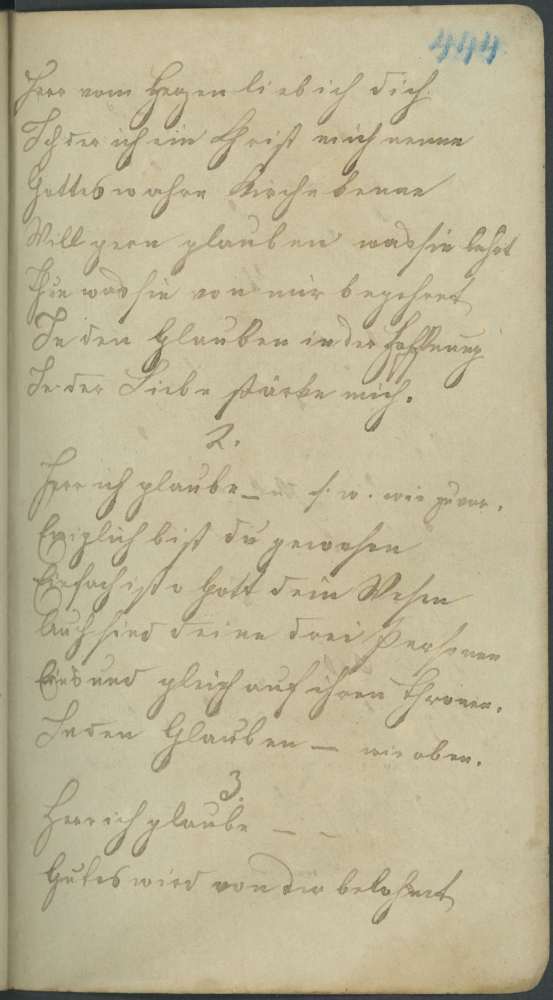 444
Herr vom Herzen lieb ich dich.
Ich der ich ein Christ mich nenne
Gottes wahre Kirche kenne
Will gern glauben was sie lehrt
Thue was sie von mir begehret
In den Glauben in der Hoffnung
In der Liebe stärke mich.
2.
Herr ich glaube – u. s. w. wie zuvor.
Ewiglich bist du gewesen
Einfach ist o Gott dein Wesen
Auch sind deine drei Personen
Eins und gleich auf ihren Thronen.
In den Glauben – wie oben.
3.
Herr ich glaube – –
Gutes wird von dir belohnet